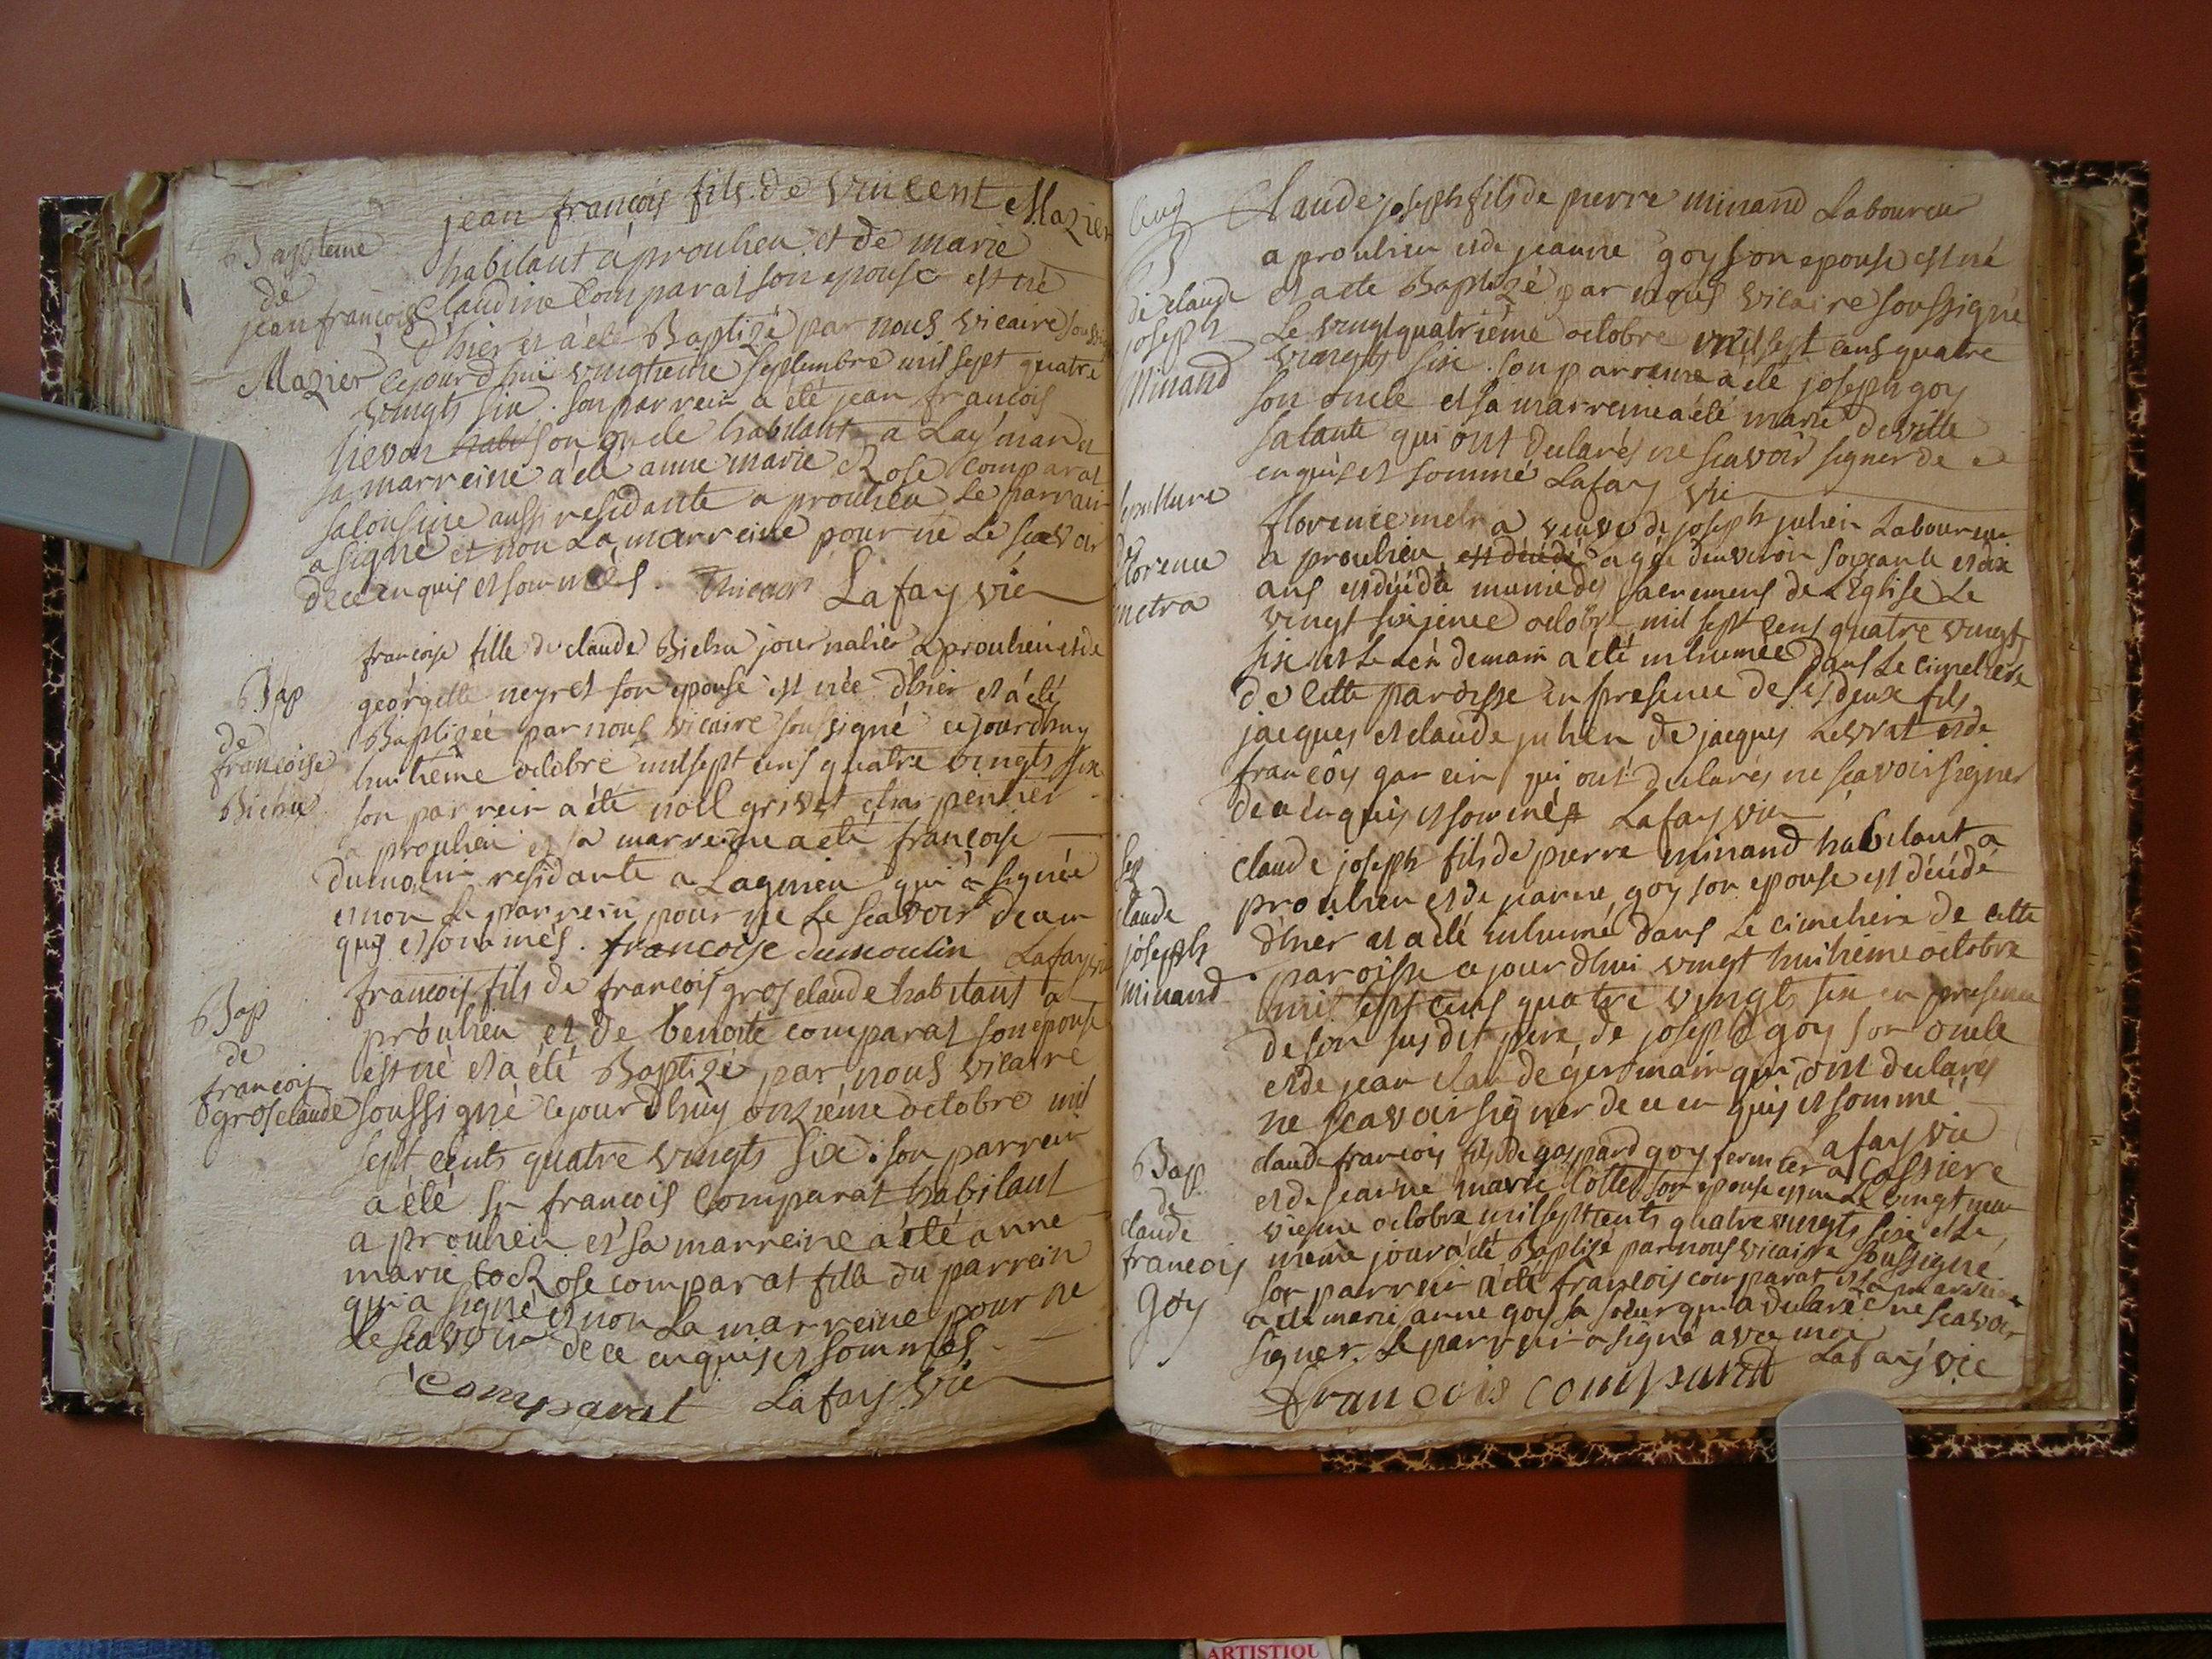 jean françois fils de vincent Mazier
Bapteme
habitant à proulieu et de marie
de
claudine Comparat son epouse est né
jean françois
d'hier et a été Baptizé par nous vicaire
Mazier
cejourdhui vingtieme septembre mil sept quatre
vingts six. son parrein a été jean françois
son oncle habitant a
sa marreine a été anne marie Rose Comparat
sa cousine aussi residante a proulieu Le parrain
a signé et non La marreine pour ne Le scavoir
de ce enquis et sommés. Lafay vic
françoise fille de claude Bichu journalier a proulieu et de
Bap
georgette neyret son epouse est née d'hier et a été
de
Baptizée par nous vicaire soussigné cejourdhuy
françoise
huitieme octobre mil sept cens quatre vingts six
Bichu
son parrein a été noel grivet charpentier
a proulieu et sa marreine a été françoise
dumoulin residante a Lagnieu qui a signée
et non Le parrein pour ne Le scavoir de ce en
quis et sommés. francoise dumoulin Lafay vic
francois fils de francois grosclaude habitant a
Bap
proulieu et de benoite comparat son epouse
de
est né et a été Baptizé par nous vicaire
francois
grosclaude
soussigné cejourdhuy onzième octobre mil
sept cents quatre vingts six. son parrein
a été sr francois Comparat habitant
a proulieu et sa marreine a été anne
marie Rose comparat fille du parrein
qui a signé et non La marreine pour ne
Le scavoir de ce enquis et sommés
comparat Lafay vic
Claude joseph fils de pierre minand Laboureur
B
a proulieu et de jeanne goy son epouse est né
de claude
et a ete Baptizé par nous vicaire soussigné
joseph
Le vingt quatrième octobre mil sept cens quatre
Minand
vingts six. son parreine a été joseph goy
son oncle et sa marreine a été marie deville
sa tante qui ont declarés ne scavoir signer de ce
enquis et sommé Lafay vic
sepulture
florence metra veuve de joseph julien Laboureur
florence
a proulieu est décédé agée d'environ soixante et dix
metra
ans est décédée munie des sacremens de L'Eglise Le
vingt sixieme octobre mil sept cens quatre vingt
six et Le Lendemain a été inhumée dans Le cimetiere
de cette paroisse en presence de ses deux fils
jacques et claude julien de jacques Levrat et de
françois garcin qui ont declarés ne scavoir signer
de ce enquis et sommés Lafay vic
claude joseph fils de pierre minand habitant a
proulieu et de jeanne goy son epouse est décédé
claude
d'hier et a été inhumé dans Le cimetiere de cette
joseph
paroisse cejourdhui vingt huitieme octobre
minand
mil sept cens quatre vingts six en presence
de son susdit pere, de joseph goy son oncle
et de jean claude germain qui ont declarés
ne scavoir signer de ce enquis et sommé
Lafay vic
Bap
claude francois fils de gaspard goy fermier a Cassiere
de
et de jeanne marie Collet son epouse est né Le vingt neu
claude
vieme octobre mil sept cents quatre vingts six et Le
francois
meme jour a été Baptisé par nous vicaire soussigné
goy
son parrein a été françois comparat et sa marreine
a été marie anne goy sa soeur qui a declaré ne scavoir
signer. Le parrein a signé avec moi
Lafay vic
francois comparat
ARTISTIQU